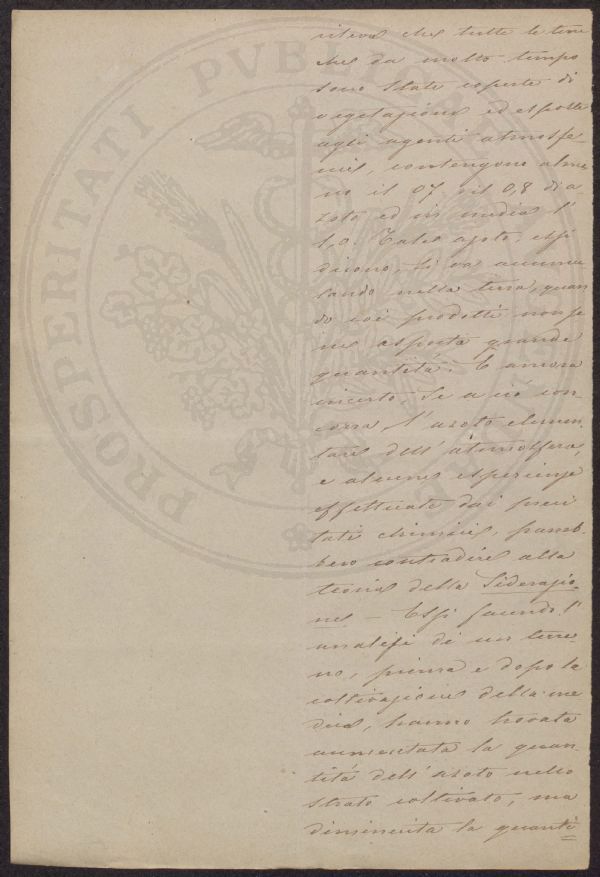 PROSPERITATI PVBLICAE
ritiene che tutte le terre
che da molto tempo
sono state coperte di
vegetazione ed esposte
agli agenti atmosfe-
rici, contengono alme
no il 07 o il 0,8 di a-
zoto ed in media l'
1,0. Tale azoto, essi
dicono, si va accumu
lando nella terra, quan
do coi prodotti non se
ne asporta grande
quantità. È ancora
incerto se a ciò con-
corra l'azoto elemen-
tare dell'atmosfera,
e alcune esperienze
effettuate dai preci
tati chimici, pareb-
bero contradire alla
teoria della Siderazio-
ne — Essi facendo l'
analisi di un terre-
no, prima e dopo la
coltivazione della me
dica, hanno trovata
aumentata la quan-
tità dell'azoto nello
strato coltivato, ma
diminuita la quanti=